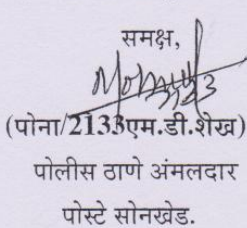 समक्ष,
(पोना/2133एम.डी.शेख)
पोलीस ठाणे अंमलदार
पोस्टे सोनखेड.